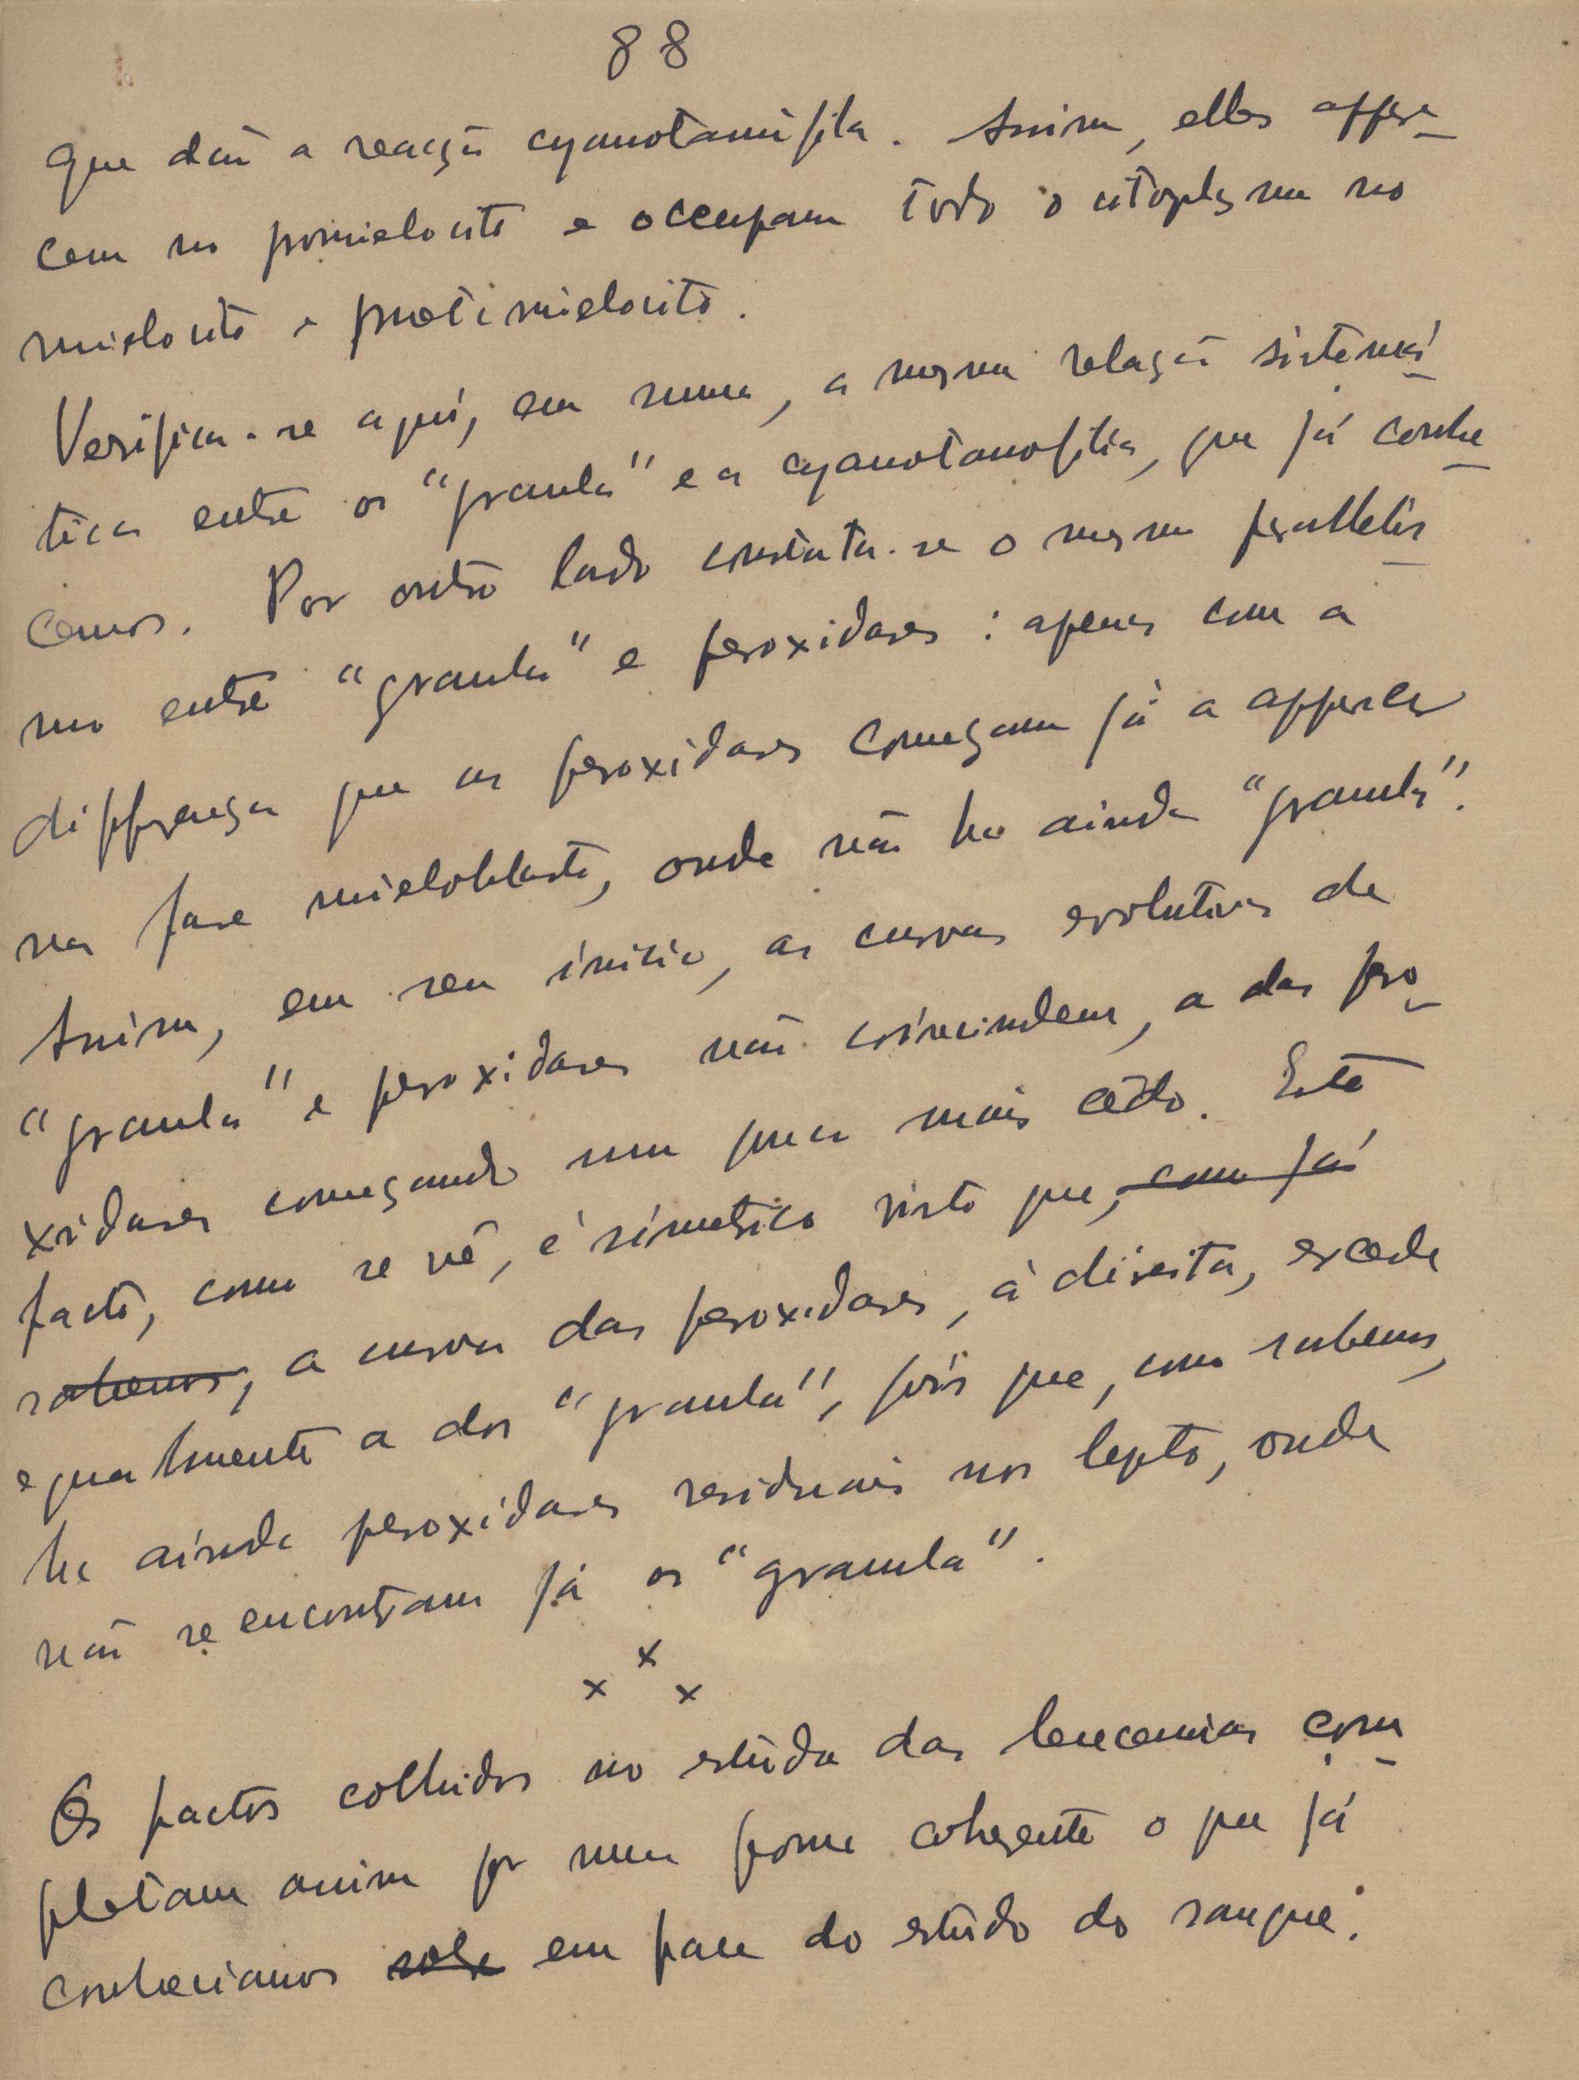 88
que dão a reacção cyanotanofila. Assim, elles appare-
cem no promielocito e occupam todo o citoplasma no
mielocito e metamielocito.
Verifica-se aqui, em suma, a mesma relação sistemá-
tica entre os "granula" e a cyanotanofilia, que já conhe-
cemos. Por outro lado constata-se o mesmo parallelis-
mo entre "granula" e peroxidases: apenas com a
differença que as peroxidases começam já a apparecer
na fase mieloblasto, onde não ha ainda "granula".
Assim, em seu inicio, as curvas evolutivas de
"granula" e peroxidases não coincindem, a das pero-
xidases começando um pouco mais cêdo. Este
facto, como se vê, é simetrico visto que, como já
sabemos, a curva das peroxidases, à direita, excede
egualmente a dos "granula", pois que, como sabemos,
ha ainda peroxidases residuais nos lepto, onde
não se encontram já os "granula".
x x x
Os factos colhidos no estudo das leucemias com-
pletam assim por uma forma coherente o que já
conheciamos sobre em face do estudo do sangue.